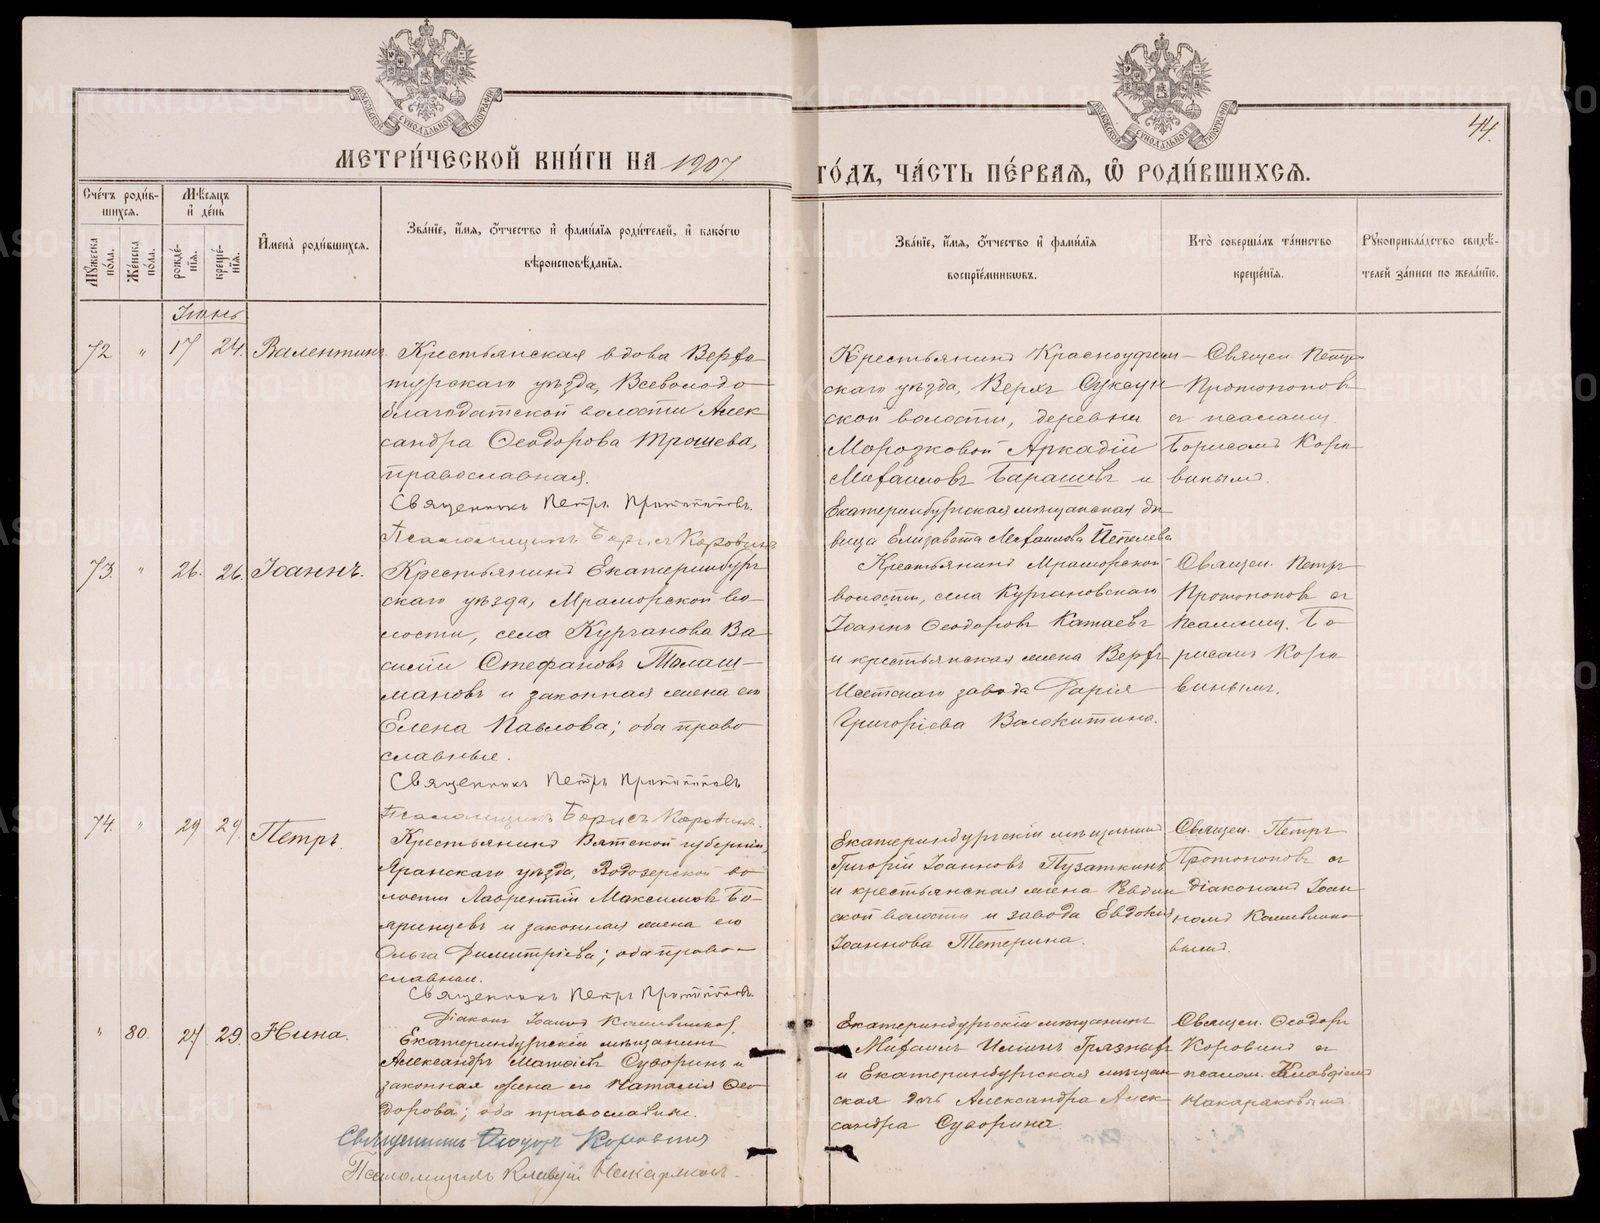 МЕТРИ́ЧЕСКОЙ КНИ́ГИ НА 1907.
ГО́ДЪ, ЧА́СТЬ ПЕ́РВАЯ, Ѡ РОДИ́ВШИХСЯ.
44.
МОСКОВСКОЙ СУНОДАЛЬНОЙ ТИПОГРАФІИ
МОСКОВСКОЙ СУНОДАЛЬНОЙ ТИПОГРАФІИ
Сче́тъ роди́вшихся.
Мꙋжеска по́ла.
Же́нска по́ла.
Мѣ́сяцъ и де́нь
рожде́нія.
креще́нія.
Имена̀ роди́вшихся.
Зва́ніе, и́мя, о́тчество и фами́лія роди́телей, и како́гѡ
вѣроисповѣ́данія.
Зва́ніе, и́мя, о́тчество и фами́лія
воспріе́мниковъ.
Кто̀ соверша́лъ та́инство
креще́нія.
Рꙋкоприкла́дство свидѣ́-
телей за́писи по жела́нію.
Іюнь
72 " 17 24. Валентинъ
Крестьянская вдова Верхо-
турскаго уѣзда, Всеволодо-
благодатской волости Алек
сандра Ѳеодорова Трошева,
православная.
Священникъ Петръ Протопоповъ.
Псаломщикъ Борисъ Коровинъ
Крестьянинъ Красноуфим-
скаго уѣзда, Верхъ Суксун
ской волости, деревни
Морозковой Аркадій
Михаиловъ Барашевъ и
Екатеринбургская мѣщанская дѣ
вица Елизавета Михаилова
Священ. Петръ
Протопоповъ
съ псаломщ.
Борисомъ Коро
винымъ.
73. " 26. 26. Іоаннъ.
Крестьянинъ Екатеринбург
скаго уѣзда, Мраморской во-
лости, села Курганова Ва
силій Стефановъ Талаш-
мановъ и законная жена его
Елена Павлова; оба право-
славные.
Священникъ Петръ Протопоповъ
Псаломщикъ Борисъ Коровинъ.
Крестьянинъ Мраморской
волости, села Кургановскаго
Іоаннъ Ѳеодоровъ Катаевъ
и крестьянская жена Верхъ
Исетскаго завода Дарія
Григоріева Волокитина.
Священ. Петръ
Протопоповъ съ
псаломщ. Бо-
рисомъ Коро
винымъ.
74. " 29 29. Петръ.
Крестьянинъ Вятской губерніи,
Яранскаго уѣзда, Водозерской во
лости Лаврентій Максимовъ Бо-
яринцевъ и законная жена его
Ольга Димитріева; оба право-
славные.
Священникъ Петръ Протопоповъ.
Діаконъ Іоаннъ
Екатеринбургскій мѣщанинъ
Григорій Іоанновъ Пузаткинъ
и крестьянская жена Ревдин
ской волости и завода Евдокія
Іоаннова Тетерина.
Священ. Петръ
Протопоповъ съ
діакономъ Іоан
номъ
вымъ.
" 80. 27 29. Нина.
Екатеринбургскій мѣщанинъ
Александръ Матѳіевъ Суворинъ и
законная жена его Наталія Ѳео
дорова; оба православные.
Священникъ Ѳеодоръ Коровинъ
Псаломщикъ Клавдій
Екатеринбургскій мѣщанинъ
Михаилъ Иліинъ Грязныхъ
и Екатеринбургская мѣщан
ская дочь Александра Алек
сандра Суворина.
Священ. Ѳеодоръ
Коровинъ съ
псалом. Клавдіемъ
METRIKI.GASO-URAL.RU